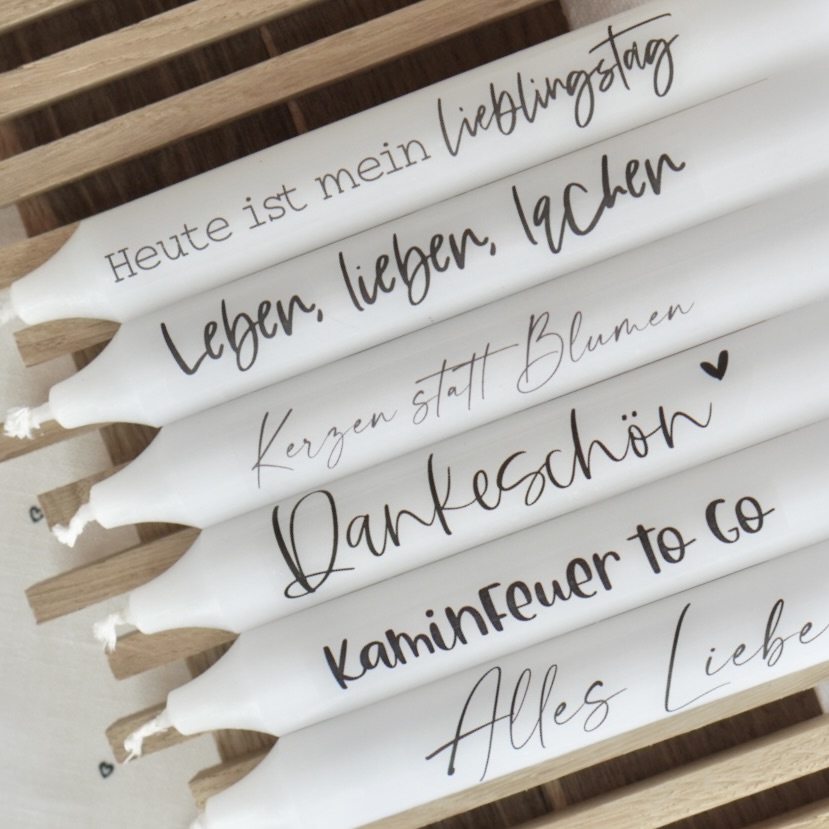 Heute ist mein Lieblingstag
Leben, lieben, lachen
Kerzen statt Blumen
Dankeschön
Kaminfeuer to Go
Alles Liebe